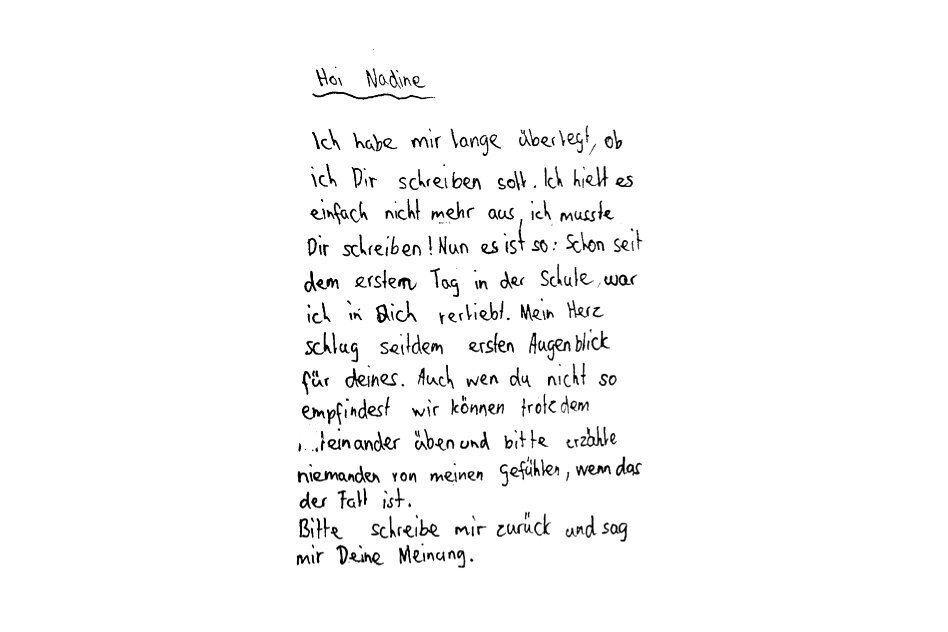 Hoi Nadine
Ich habe mir lange überlegt, ob
ich Dir schreiben soll. Ich hielt es
einfach nicht mehr aus, ich musste
Dir schreiben! Nun es ist so: Schon seit
dem erstem Tag in der Schule, war
ich in Dich verliebt. Mein Herz
schlug seitdem ersten Augenblick
für deines. Auch wen du nicht so
empfindest wir können trotzdem
üben und bitte erzähle
niemanden von meinen Gefühlen, wenn das
der Fall ist.
Bitte schreibe mir zurück und sag
mir Deine Meinung.